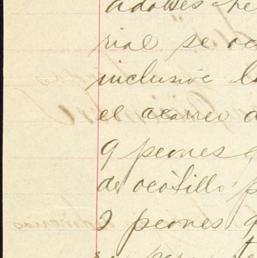 adobes he
rial se oc
inclusive la
el acarreo d
9 peones q
de ocotillo p
2 peones q